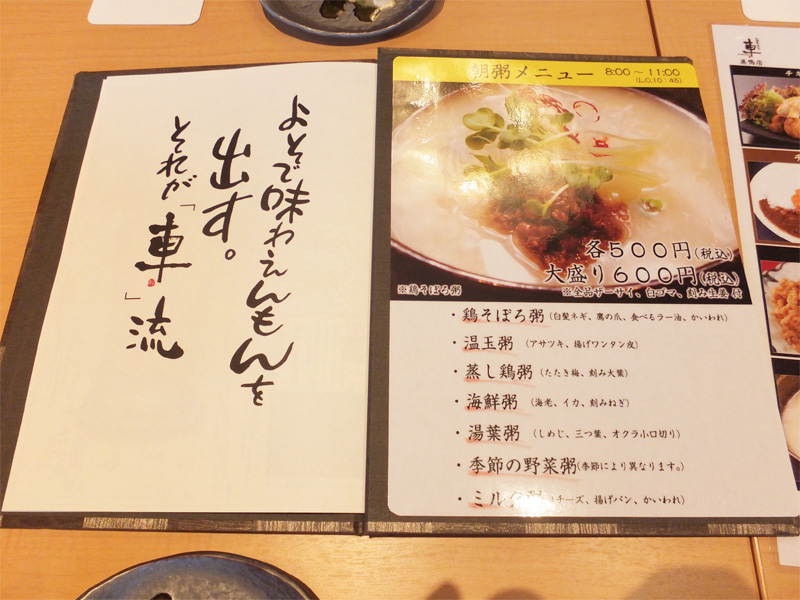 よそで味わえんもんを
出す。
それが「車」流
朝粥メニュー 8:00～11:00
(L.O.10:45)
各５００円(税込)
大盛り６００円(税込)
※鶏そぼろ粥
※全品ザーサイ、白ゴマ、刻み生姜付
・鶏そぼろ粥 (白髪ネギ、鷹の爪、食べるラー油、かいわれ)
・温玉粥 (アサツキ、揚げワンタン皮)
・蒸し鶏粥 (たたき梅、刻み大葉)
・海鮮粥 (海老、イカ、刻みねぎ)
・湯葉粥 (しめじ、三つ葉、オクラ小口切り)
・季節の野菜粥(季節により異なります。)
・ミルク粥 (チーズ、揚げパン、かいわれ)
車
巣鴨店